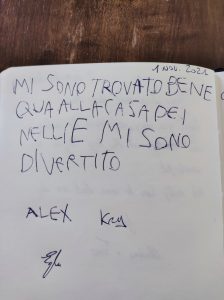 1 NOV. 2021
MI SONO TROVATO BENE
QUA ALLA CASA DEI
NELLI E MI SONO
DIVERTITO
ALEX Kry